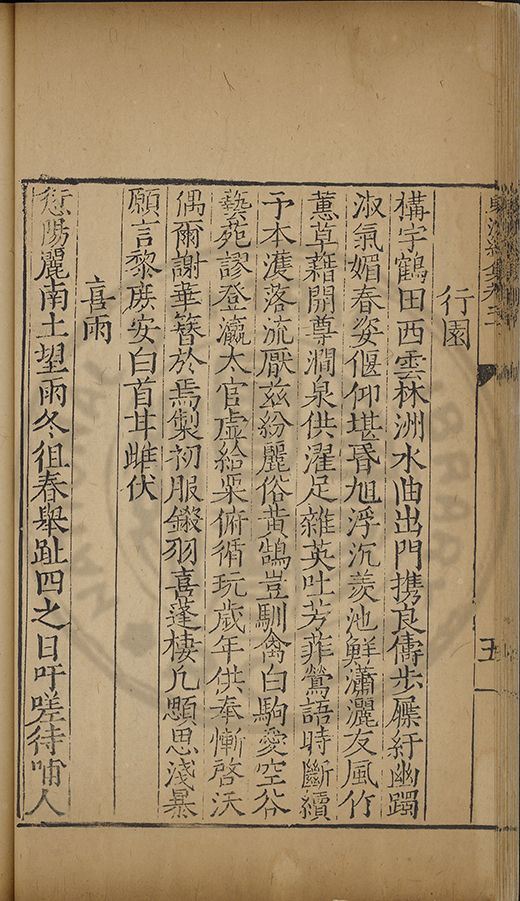 行園
構宇鶴田西雲林洲水曲出門携良儔步屧紆幽躅
淑氣媚春姿偃仰堪昏旭浮沉羡池鮮瀟灑友風竹
蕙草藉開尊澗泉供濯足雜英吐芳菲鶯語時斷續
予本濩落流厭茲紛麗俗黄鵠豈馴禽白駒愛空谷
藝苑謬登瀛太官虛給粟俯循玩歲年供奉慚啓沃
偶爾謝華簪於焉製初服鎩羽喜蓬棲凡顋思淺暴
願言黎庻安白首甘雌伏
喜雨
愆陽麗南土望雨冬徂春舉趾四之日吁嗟待哺人
五